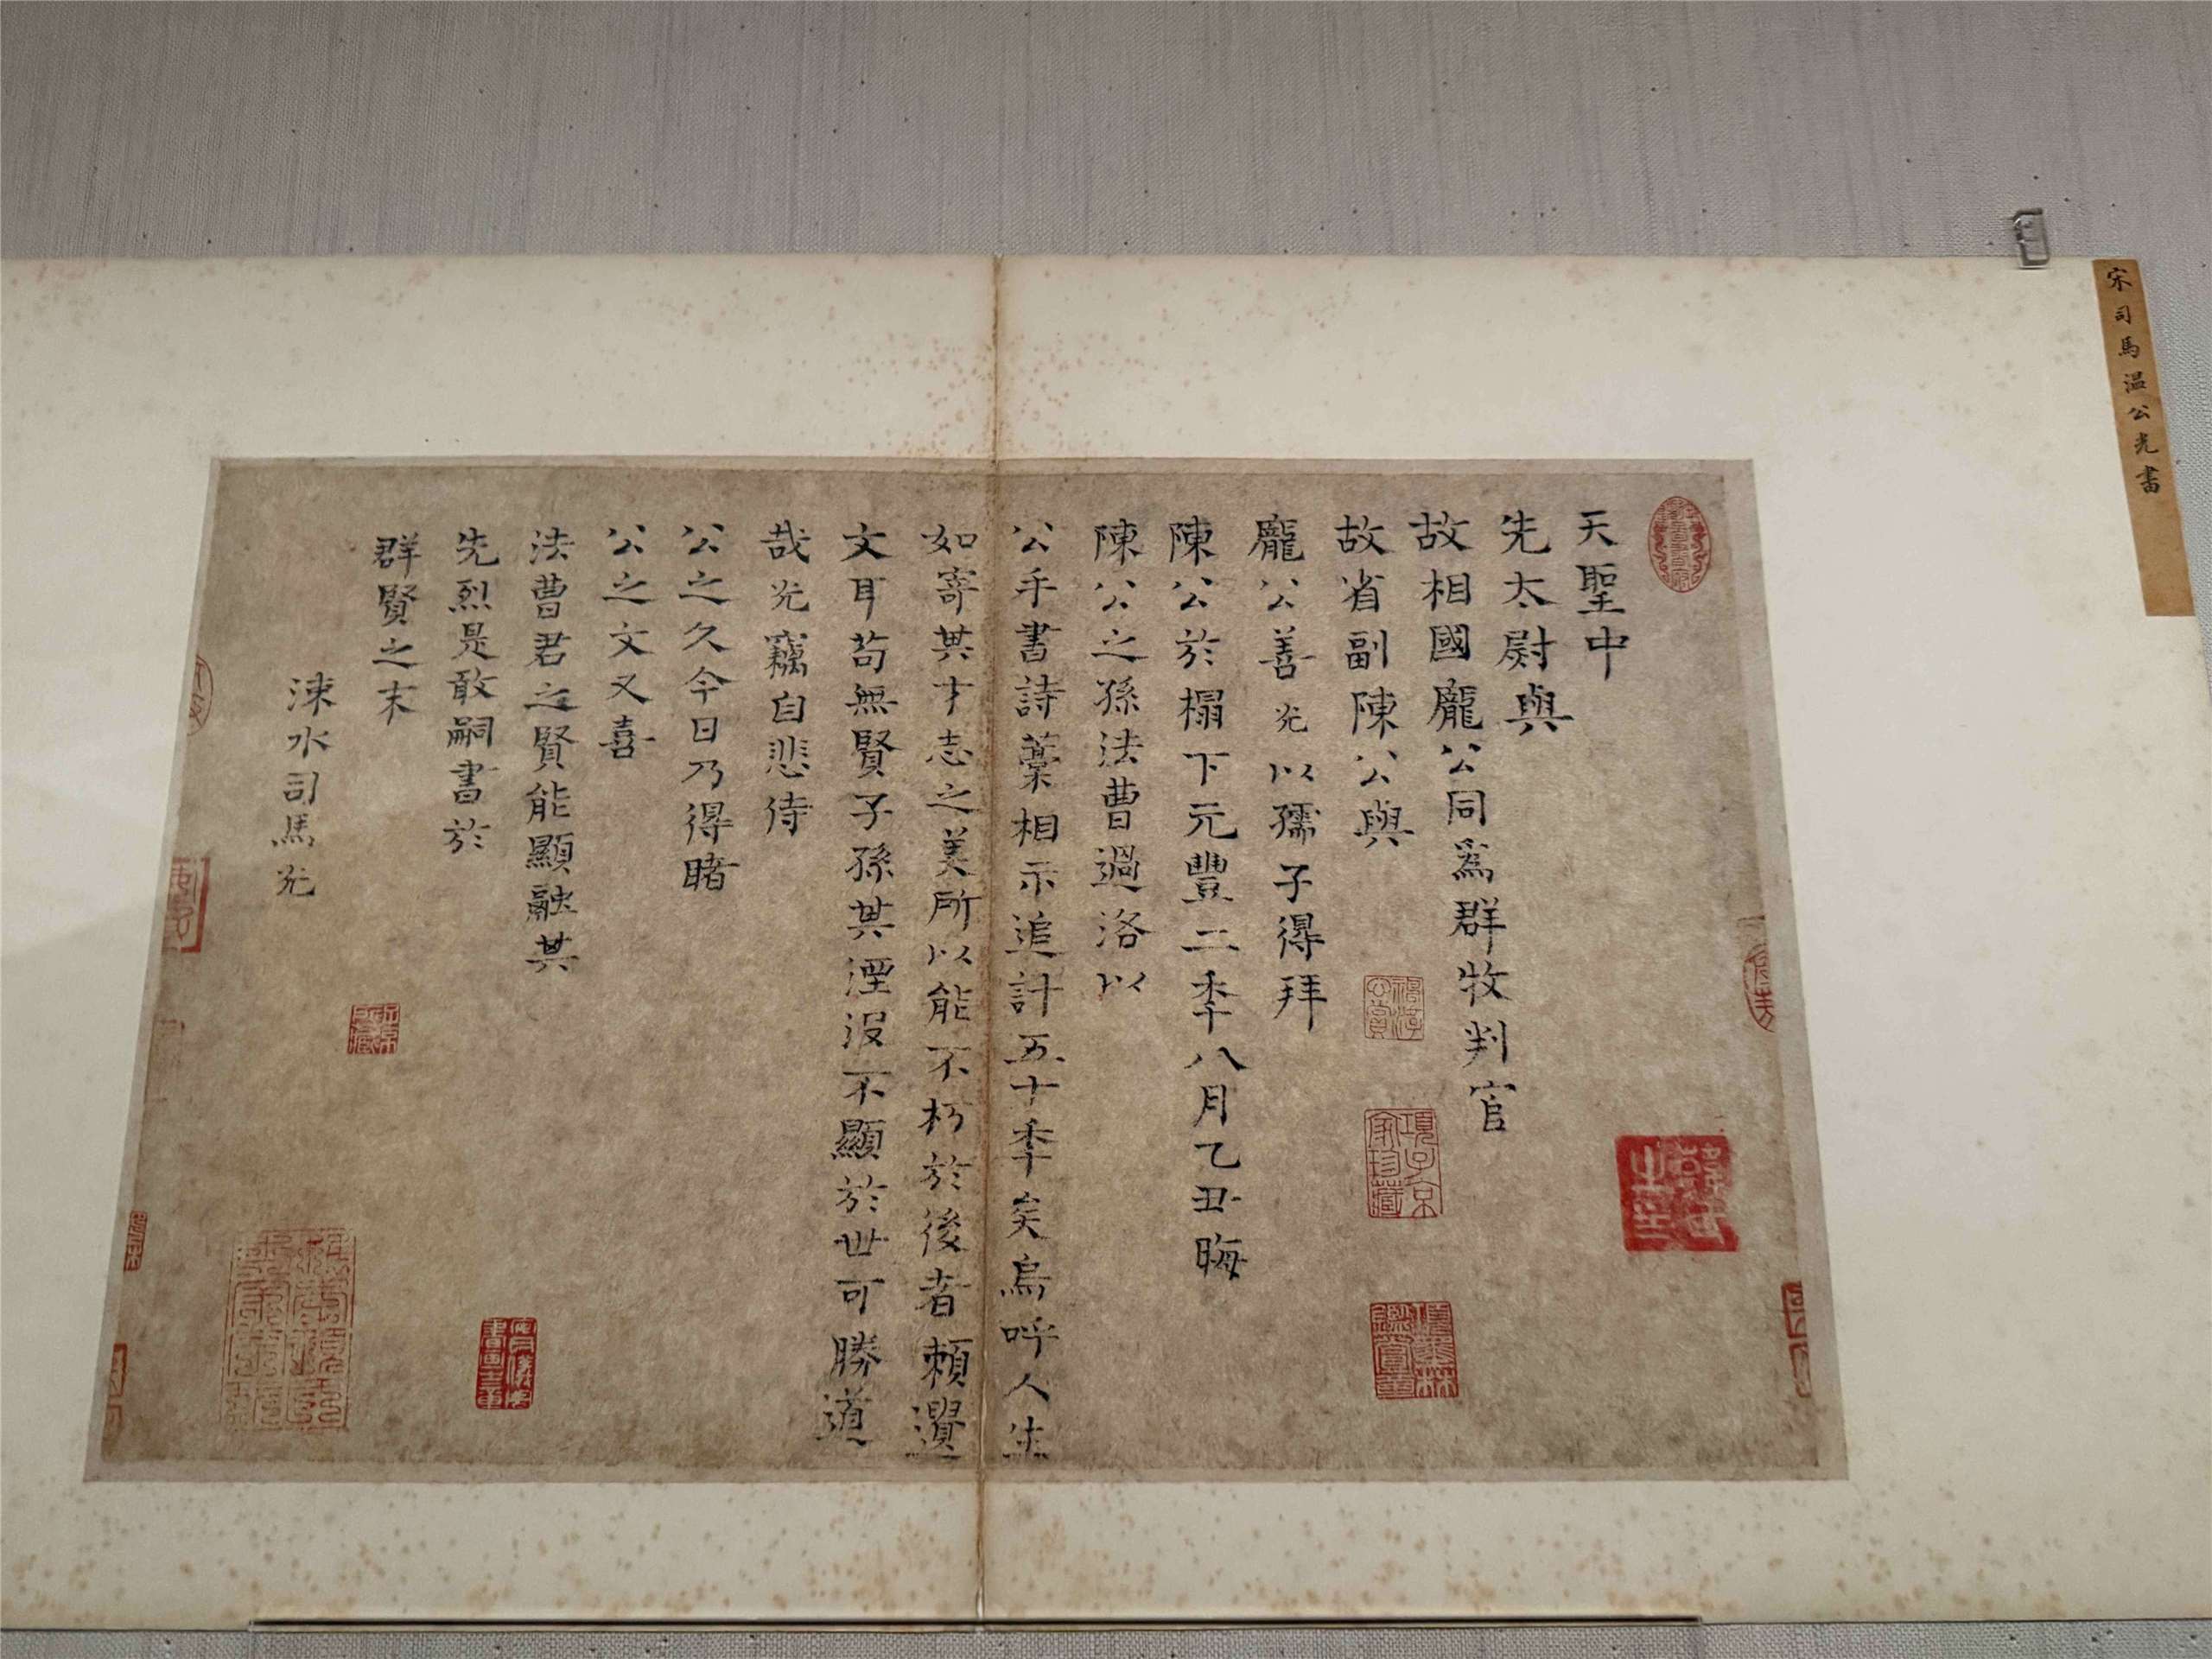 宋司馬温公光書
天聖中
先太尉與
故相國龐公同爲群牧判官
故省副陳公與
龐公善光以孺子得拜
陳公於榻下元豐二秊八月乙丑晦
陳公之孫法曹過洛以
公手書詩藁相示追計五十秊矣烏呼人生
如寄其才志之美所以能不朽於後者賴遺
文耳苟無賢子孫其湮沒不顯於世可勝道
哉光竊自悲侍
公之久今日乃得睹
公之文又喜
法曹君之賢能顯融其
先烈是敢嗣書於
群賢之末
涑水司馬光
項子京家珍藏
項墨林鑑賞章